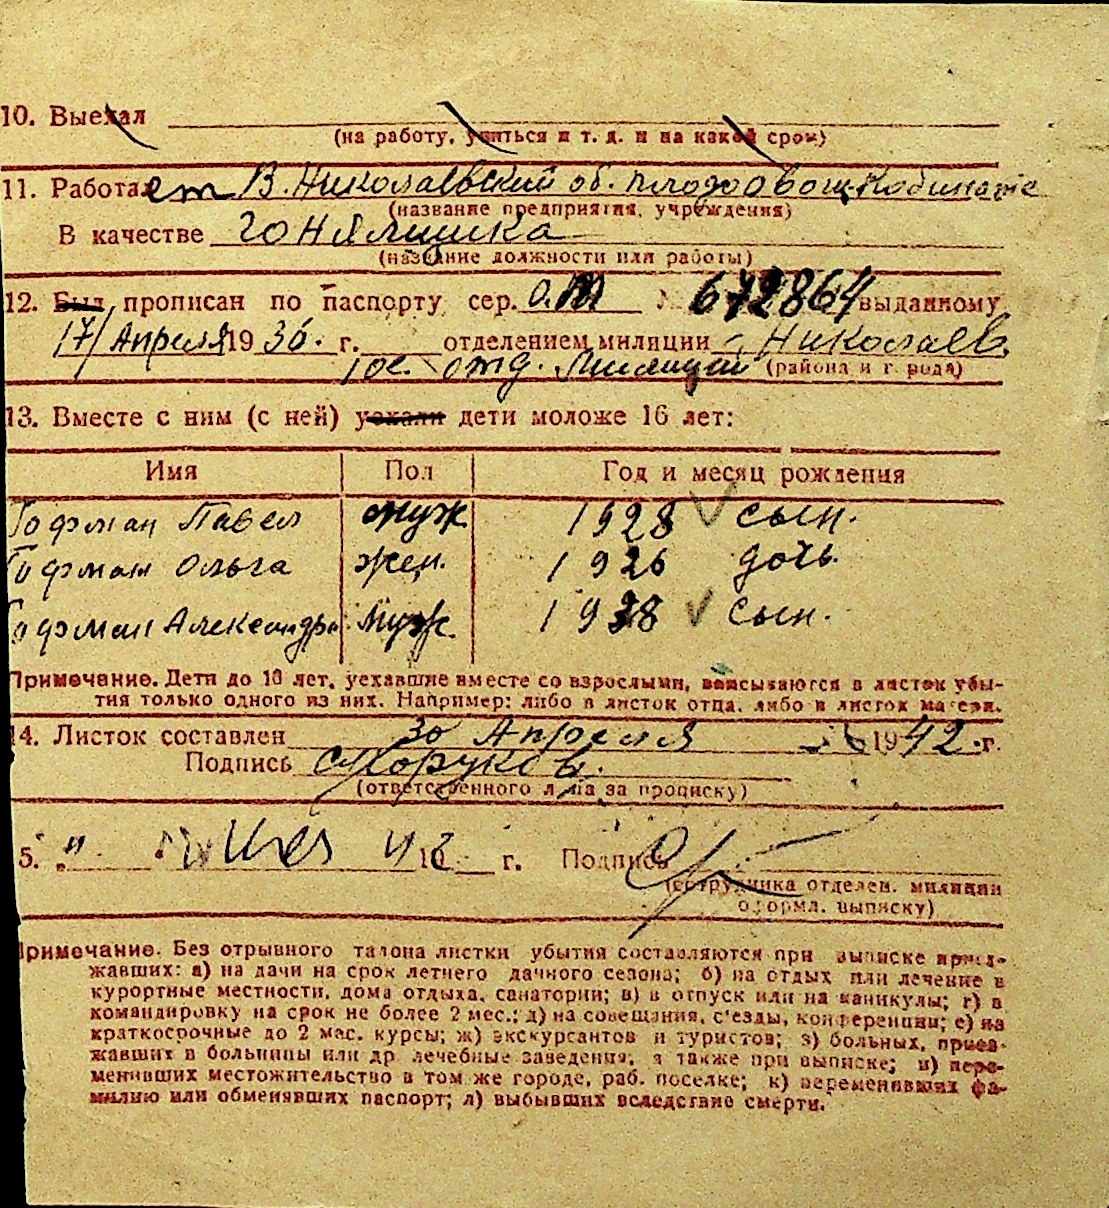 10. Выехал
(на работу, учиться и т. д. и на какой срок)
11. Работает В. Николаевский об. плодоовощ. Кобинате
(название предприятия, учреждения)
В качестве
(название должности или работы)
12. Был прописан по паспорту сер. 672864 выданному
17/ Апреля 1936. г. отделением милиции Николаев.
гос. отд. Милиции (района и города)
13. Вместе с ним (с ней) уехали дети моложе 16 лет:
Имя Пол Год и месяц рождения
Гофман Павел муж 1928 сын.
Гофман Ольга жен. 1926 дочь
Гофман Александр муж. 1938 сын.
Примечание. Дети до 16 лет, уехавшие вместе со взрослыми, вписываются в листок убы-
тия только одного из них. Например: либо в листок отца, либо в листок матери.
14. Листок составлен 30 Апреля 1942.г.
Подпись
(ответственного лица за прописку)
5. „ " 42 г. Подпись
(сотрудника отделен. милиции
оформл. выписку)
Примечание. Без отрывного талона листки убытия составляются при выписке приез-
жавших: а) на дачи на срок летнего дачного сезона; б) на отдых или лечение в
курортные местности, дома отдыха, санатории; в) в отпуск или на каникулы; г) в
командировку на срок не более 2 мес.; д) на совещания, с'езды, конференции; е) на
краткосрочные до 2 мес. курсы; ж) экскурсантов и туристов; з) больных, приез-
жавших в больницы или др лечебные заведения, а также при выписке; и) пере-
менивших местожительство в том же городе, раб. поселке; к) переменивших фа-
милию или обменявших паспорт; л) выбывших вследствие смерти.